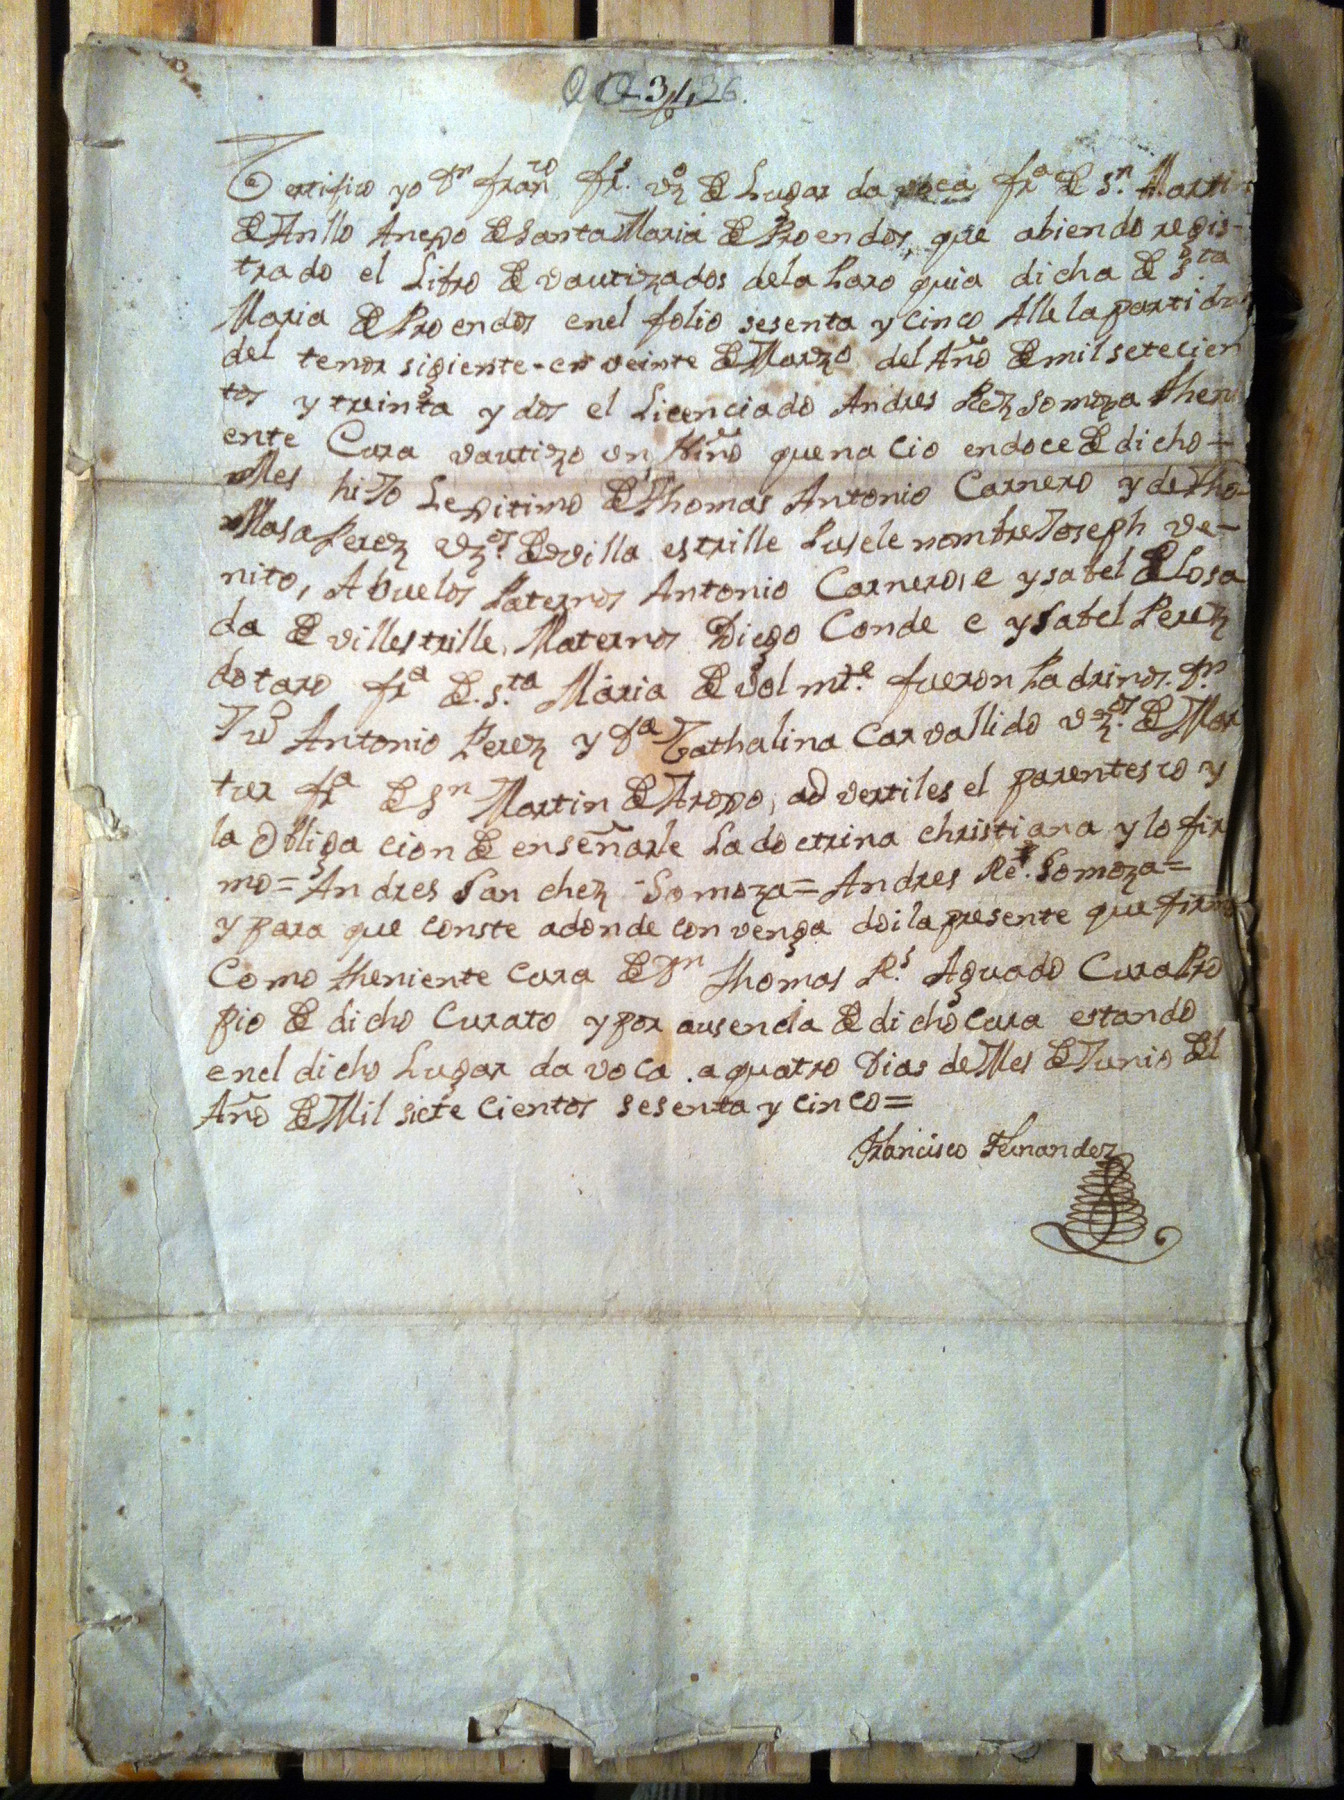 Certifico yo Dn Franco Frs. vo de Lugar da voca fra de Sn. Marti
de Anllo Anejo de Santa Maria de Proendos, que abiendo regis-
trado el Libro de vautizados dela Paro quia dicha de Sta
Maria de Proendos enel folio sesenta y cinco Alle la partida
del tenor sigiente - en veinte de Marzo del Año de mil setecien
tos y treinta y dos el Licenciado Andres Rez Somoza theni
ente Cura vautizo un Niño que na cio en doce de dicho
Mes hiJo Lejitimo de Thomas Antonio Carnero y de Tho
Masa Perez vzos. de villa estrille Pusele nombre Joseph Ve-
nito, Abuelos Paternos Antonio Carnero, e ysabel de Losa
da de villestrille, Maternos Diego Conde e ysabel Perez
dotaro fra de. Sta Maria de vol mte. fueron Padrinos. Dn
Antonio Perez y Da Cathalina Carvallido vzos. de Mar
tur fra de Sn Martin de Arojo, ad vertiles el parentesco y
la obliga cion de enseñarle La doctrina christiana y lo fir
mo = Andres San chez Somoza = Andres Re. Somoza =
y para que conste adonde con venga doi la presente que firmo
Como theniente cura de Dn Thomas Rs. Aguado Cura Pro
pio de dicho Curato y por ausencia de dicho cura estando
enel dicho Lugar da voca. a quatro Dias de Mes de Junio del
Año de Mil siete cientos sesenta y cinco =
Francisco Fernandez